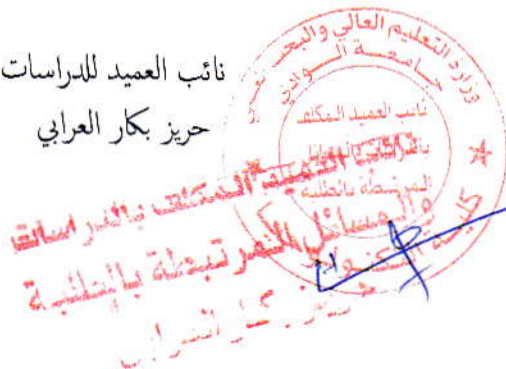 نائب العميد للدراسات
حريز بكار العرابي
وزارة التعليم العالي والبحث
جامعة الوادي
نائب العميد المكلف
بالدراسات والمسائل
المرتبطة بالطلبة
كلية التكنولوجيا
نائب العميد المكلف بالدراسات
والمسائل المرتبطة بالطلبة